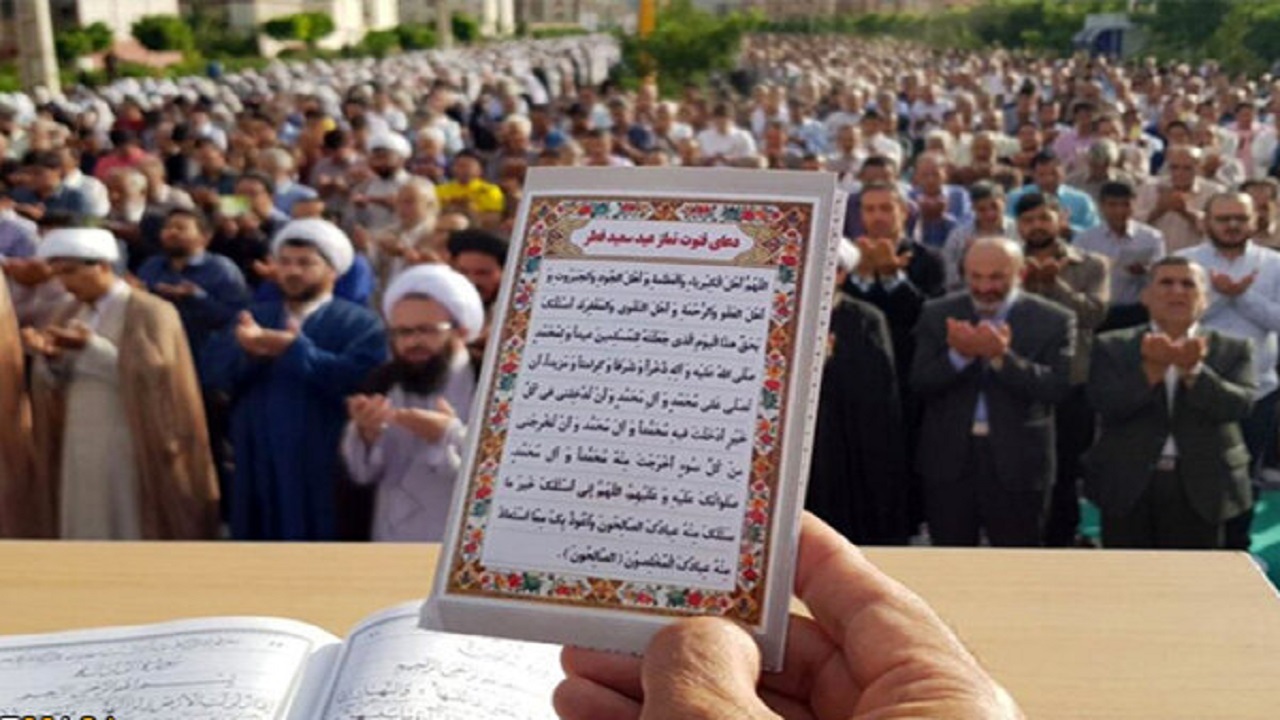 دعای قنوت نماز عید سعید فطر
اَللّهُمَّ اَهْلَ الْکِبْرِیاءِ وَالْعَظَمَةِ وَ اَهْلَ الْجُودِ وَالْجَبَرُوتِ وَ
اَهْلَ الْعَفْوِ وَالرَّحْمَةِ وَ اَهْلَ التَّقْوی وَالْمَغْفِرَةِ اَسْئَلُکَ
بِحَقِّ هذَا الْیَومِ الَّذی جَعَلْتَهُ لِلْمُسْلِمینَ عیداً وَ لِمُحَمَّدٍ
صَلَّی اللهُ عَلَیْهِ وَ الِهِ ذُخْراً وَ شَرَفاً وَ کَرامَتاً وَ مَزیداً اَن
تُصَلِّیَ عَلی مُحَمَّدٍ وَ آلِ مُحَمَّدٍ وَ اَنْ تُدْخِلَنی فی کُلِّ
خَیْرٍ اَدْخَلْتَ فیهِ مُحَمَّداً وَ آلَ مُحَمَّدٍ وَ اَنْ تُخْرِجَنی
مِنْ کُلِّ سُوءٍ اَخْرَجْتَ مِنْهُ مُحَمَّداً وَ آلَ مُحَمَّدٍ
صَلَواتُکَ عَلَیْهِ وَ عَلَیْهِمْ اَللّهُمَّ اِنّی اَسْئَلُکَ خَیْرَ ما
سَئَلَکَ مِنْهُ عِبادُکَ الصّالِحُونَ وَ اَعُوذُ بِکَ مِمَّا اسْتَعاذَ
مِنْهُ عِبادُکَ الْمُخْلِصُونَ (الصّالِحُونَ).